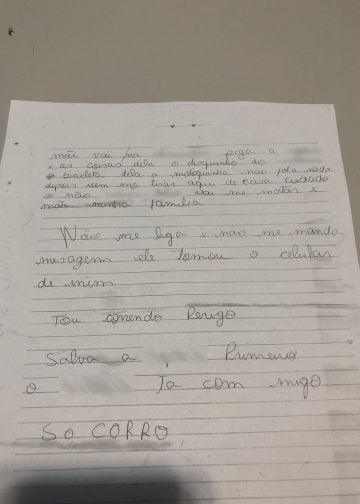 mãe vai na piga a
e as coisas dela o disquinho do
a bicicleta dela a motoquinha não fala nada
depois vem me tirar aqui de casa cuidado
e mão vai me matar e
matar minha família
Não me liga e não me manda
mesagem ele tomou o celular
de mim
Tou correndo Perigo
Salva a Primeiro
o Ta com migo
SO CORRO